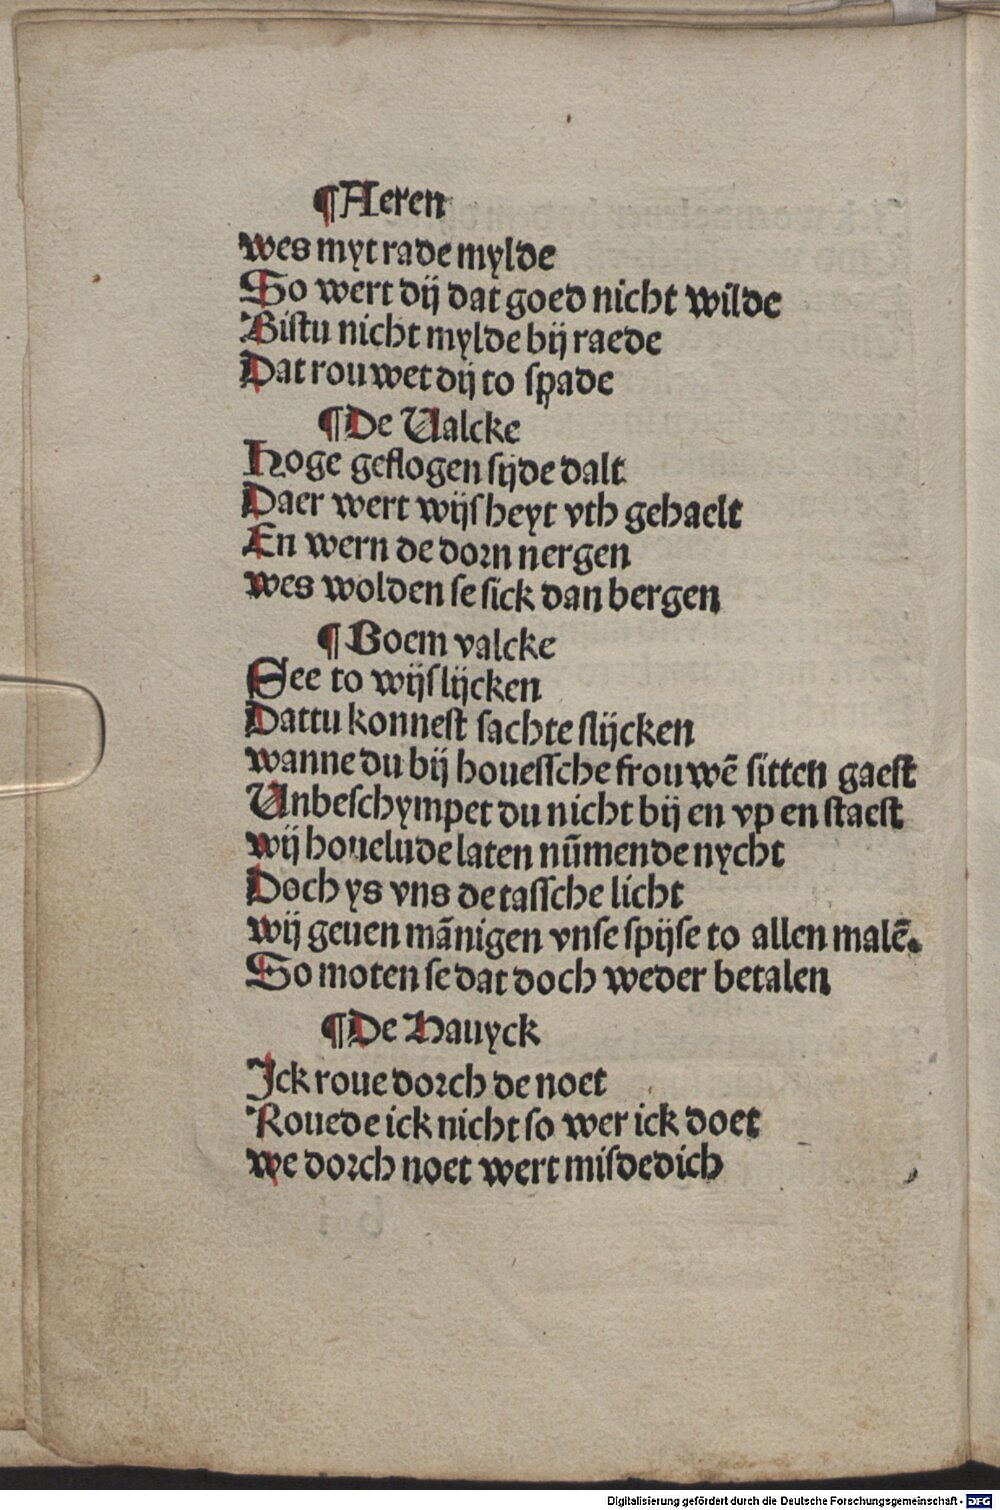 ¶Aeren
wes myt rade mylde
So wert dij dat goed nicht wilde
Bistu nicht mylde bij raede
Dat rouwet dij to spade
¶De Ualcke
Hoge geflogen sijde dalt
Daer wert wijsheyt vth gehaelt
En wern de dorn nergen
wes wolden se sick dan bergen
¶Boem valcke
See to wijslijcken
Dattu konnest sachte slijcken
wanne du bij houessche frouwē sitten gaest
Unbeschympet du nicht bij en vp en staest
wij houelude laten nūmende nycht
Doch ys vns de tassche licht
wij geuen mānigen vnse spijse to allen malē.
So moten se dat doch weder betalen
¶De Hauyck
Ick roue dorch de noet
Rouede ick nicht so wer ick doet
we dorch noet wert misdedich
Digitalisierung gefördert durch die Deutsche Forschungsgemeinschaft - DFG